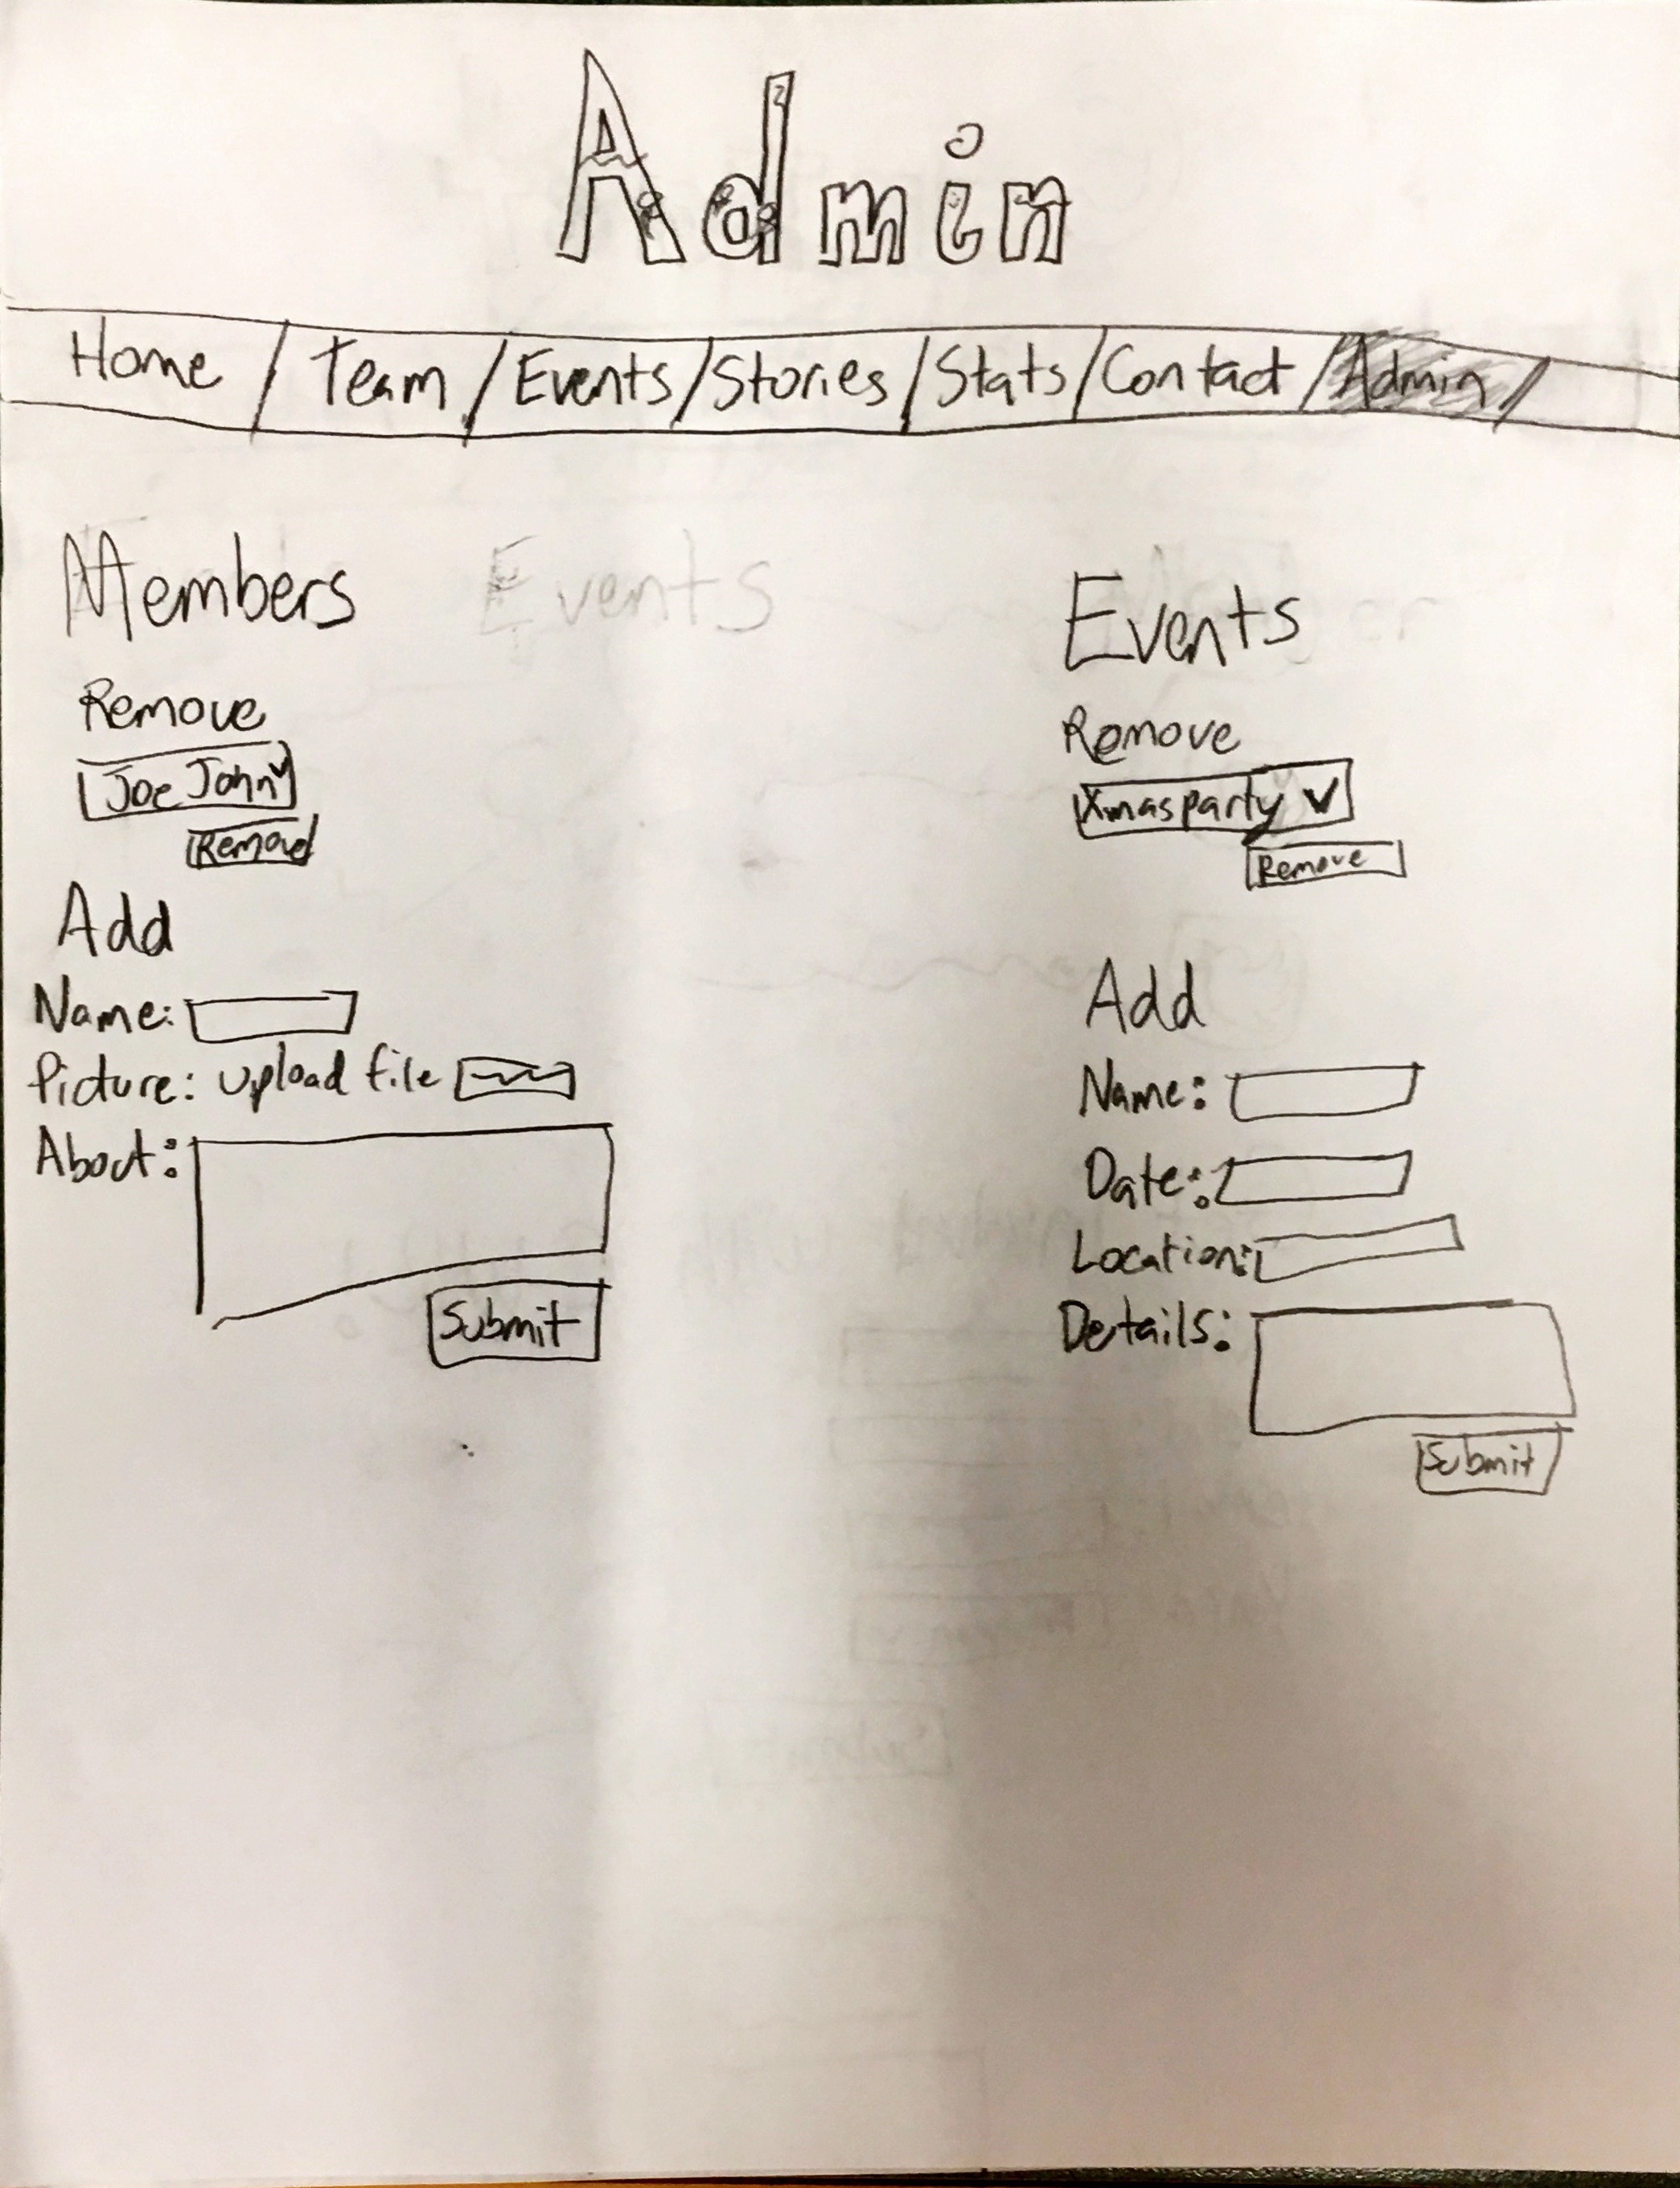 Admin
Home / Team / Events / Stories / Stats / Contact / Admin /
Members
Events
Remove
Joe John
Remove
Add
Name:
Picture: upload file
About:
Submit
Events
Remove
Xmas party
Remove
Add
Name:
Date:
Location:
Details:
Submit